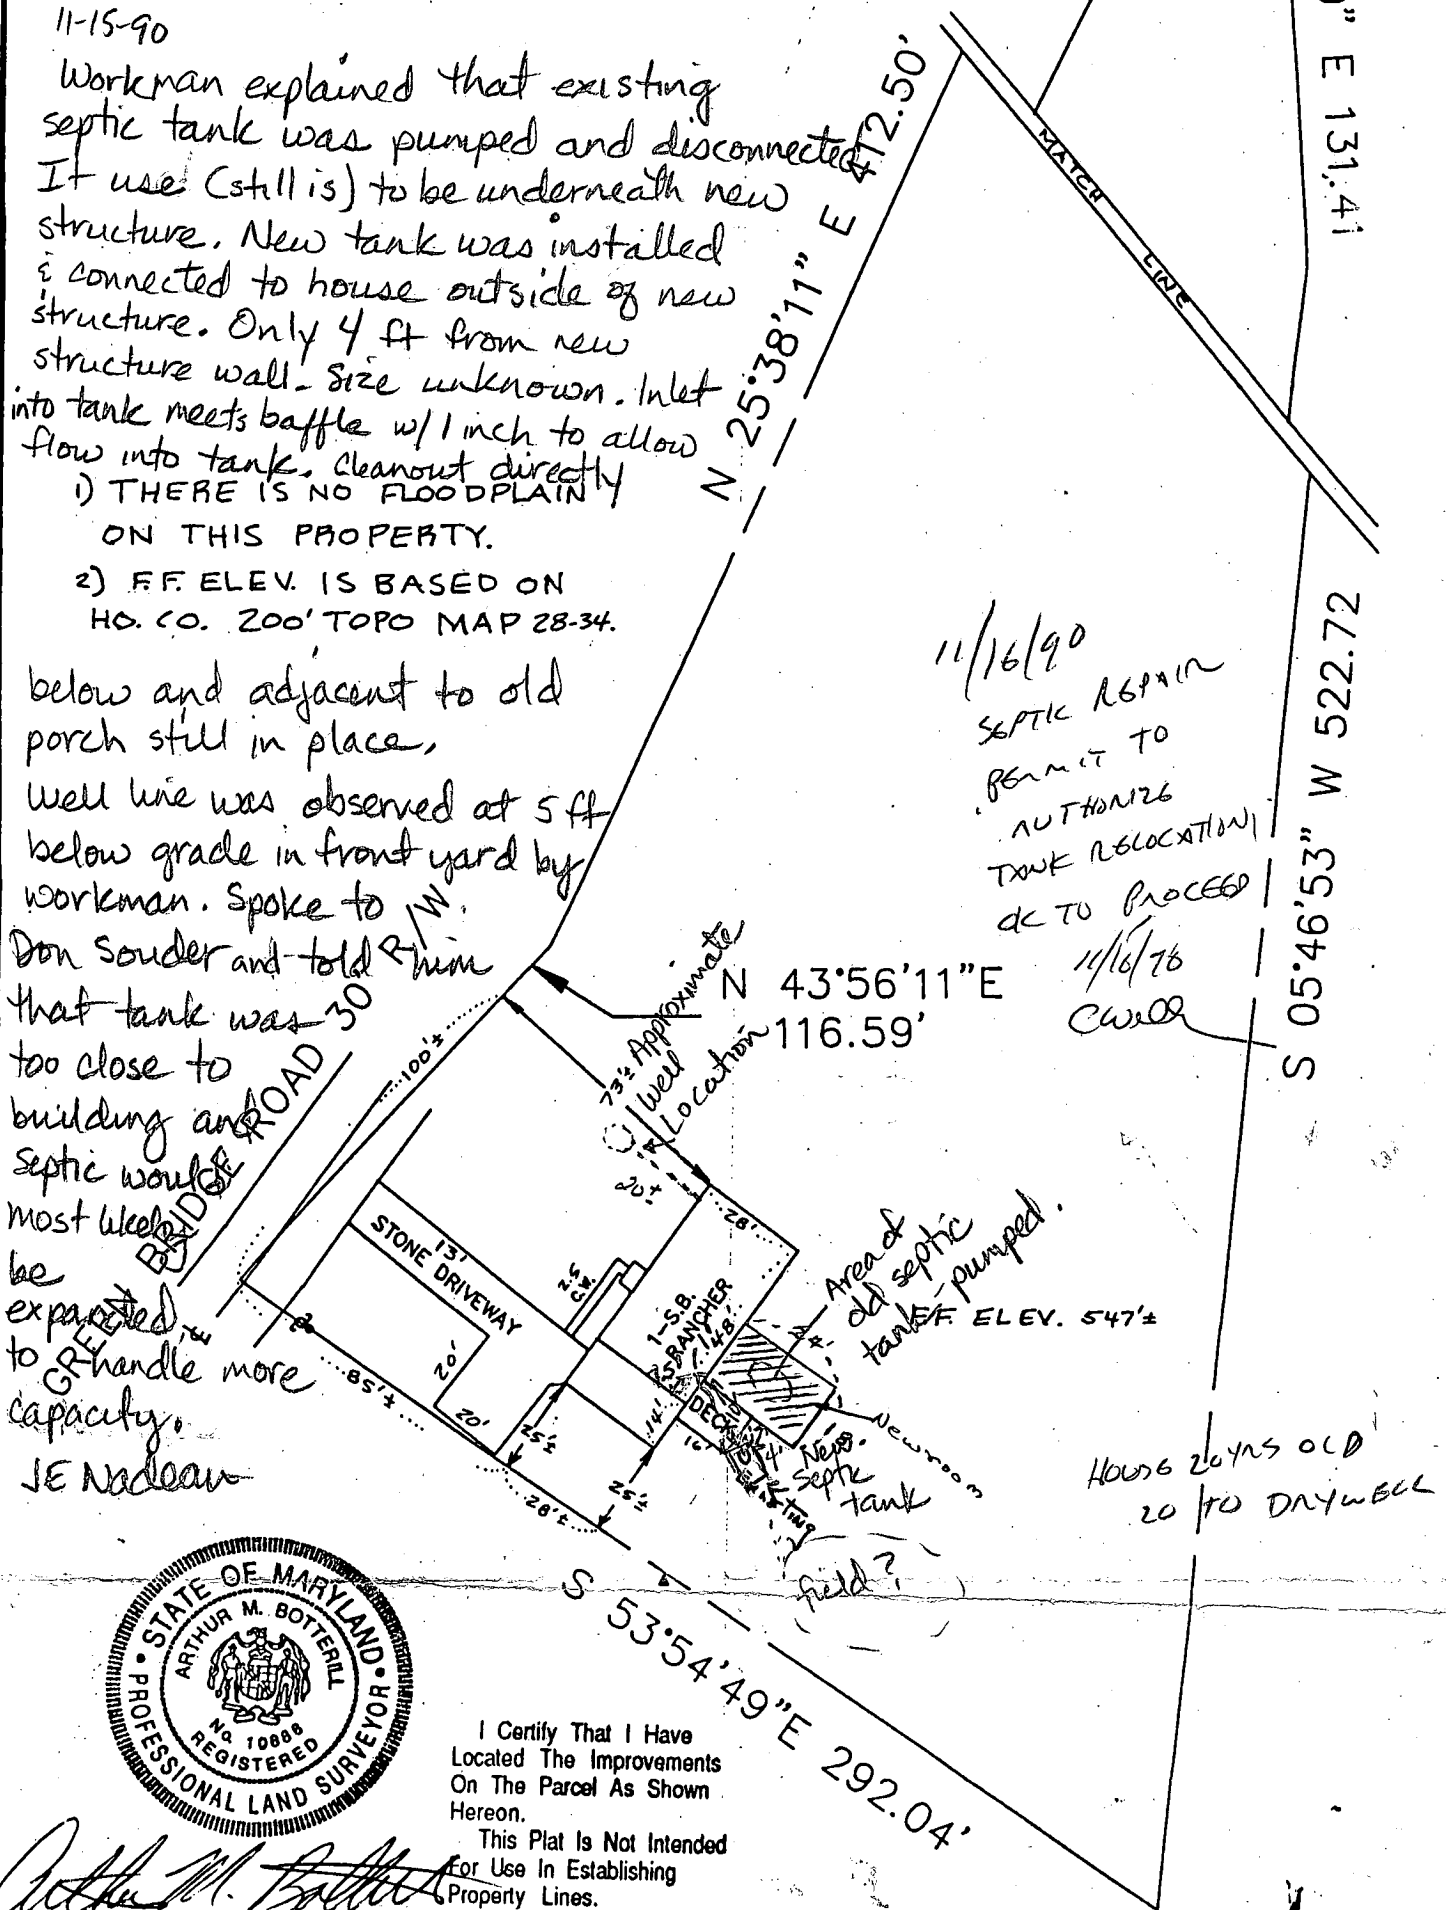 11-15-90
Workman explained that existing
septic tank was pumped and disconnected
It use (still is) to be underneath new
structure. New tank was installed
& connected to house outside of new
structure. Only 4 ft from new
structure wall. Size unknown. Inlet
into tank meets baffle w/ 1 inch to allow
flow into tank. Cleanout directly
1) THERE IS NO FLOODPLAIN
ON THIS PROPERTY.
2) F.F. ELEV. IS BASED ON
HO. CO. 200' TOPO MAP 28-34.
below and adjacent to old
porch still in place.
Well line was observed at 5 ft
below grade in front yard by
workman. Spoke to
Don Souder and told him
that tank was
too close to
building and
septic would
most likely
be
expanded
to handle more
capacity.
JE Nadeau
N 25°38'11" E 472.50'
MATCH LINE
" E 131.41
S 05°46'53" W 522.72
11/16/90
SEPTIC REPAIR
PERMIT TO
AUTHORIZE
TANK RELOCATION,
OK TO PROCEED
N 43°56'11"E
116.59'
GREEN BRIDGE ROAD 30' R/W
100'±
73'± Approximate
Well
Location
20±
28'
STONE DRIVEWAY
13'
20'
20'
85'±
25'±
28'±
25'±
14'
16'
1-S.B.
RANCHER
48'
DECK
Area of
old septic
tank-pumped.
F.F. ELEV. 547'±
New room
4'
New
Septic
tank
EXISTING
field?
HOUSE 20 YRS OLD
20 TO DRYWELL
S 53°54'49"E 292.04'
STATE OF MARYLAND
ARTHUR M. BOTTERILL
No. 10886
REGISTERED
PROFESSIONAL LAND SURVEYOR
I Certify That I Have
Located The Improvements
On The Parcel As Shown
Hereon.
This Plat Is Not Intended
For Use In Establishing
Property Lines.